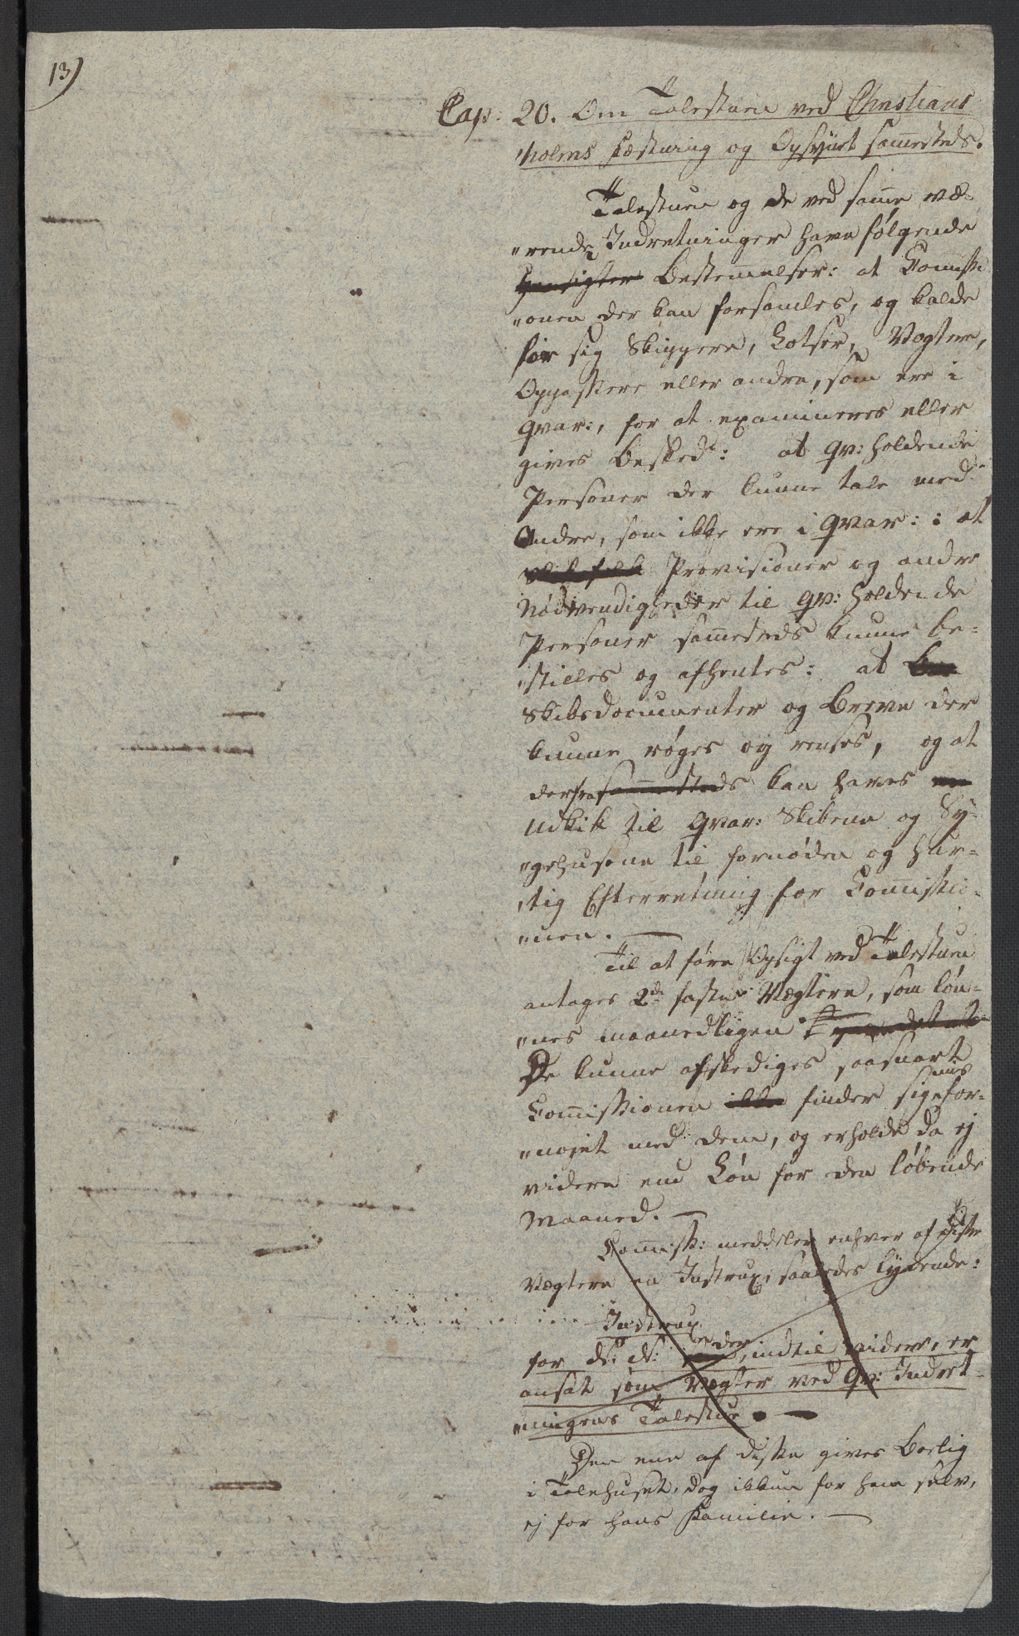 13)
Cap: 20. Om Talestuen ved Christians
"holms Fæstning og Opsynet sammesteds.
Talestuen og de ved samme væ-
"rende Indretninger have følgende
Hensigter Bestemmelser: at Commissi
"onen der kan forsamles, og kalde
for sig Skippere, Lotser, Vogtere,
Oppassere eller andre, som ere i
Qvar:, for at examineres eller
gives Beskeed: at Qv: holdende
Personer der kunne tale med
Andre, som ikke ere i Qvar: : at
Provisioner og andre
Nødvendigheder til Qv: holdende
Personer sammesteds kunne be-
"stilles og afhentes: at
Skibsdocumenter og Breve der
kunne røges og renses, og at
derfra sammesteds kan haves
Udkik til Qvar: Skibene og Sy-
"gehusene til fornøden og hur-
"tig Efterretning for Commissio-
"nen. —
Til at føre Opsigt ved Talestuen
antages 2de faste Vægtere, som løn-
"nes maanedligen
De kunne afskediges saasnart
Commissionen ikke finder sig misfor-
"nøjet med dem, og erholde da ej
videre end Løn for den løbende
Maaned. —
Commiss: meddeler enhver af disse
Vægtere en Instrux, saaledes lydende:
Instrux
for N: N: der, indtil videre, er
ansat som Vægter ved Qv: Indret-
"ningens Talestue. —
Den ene af disse gives Bolig
i Talehuset, dog ikkun for ham selv,
ej for hans Familie. —